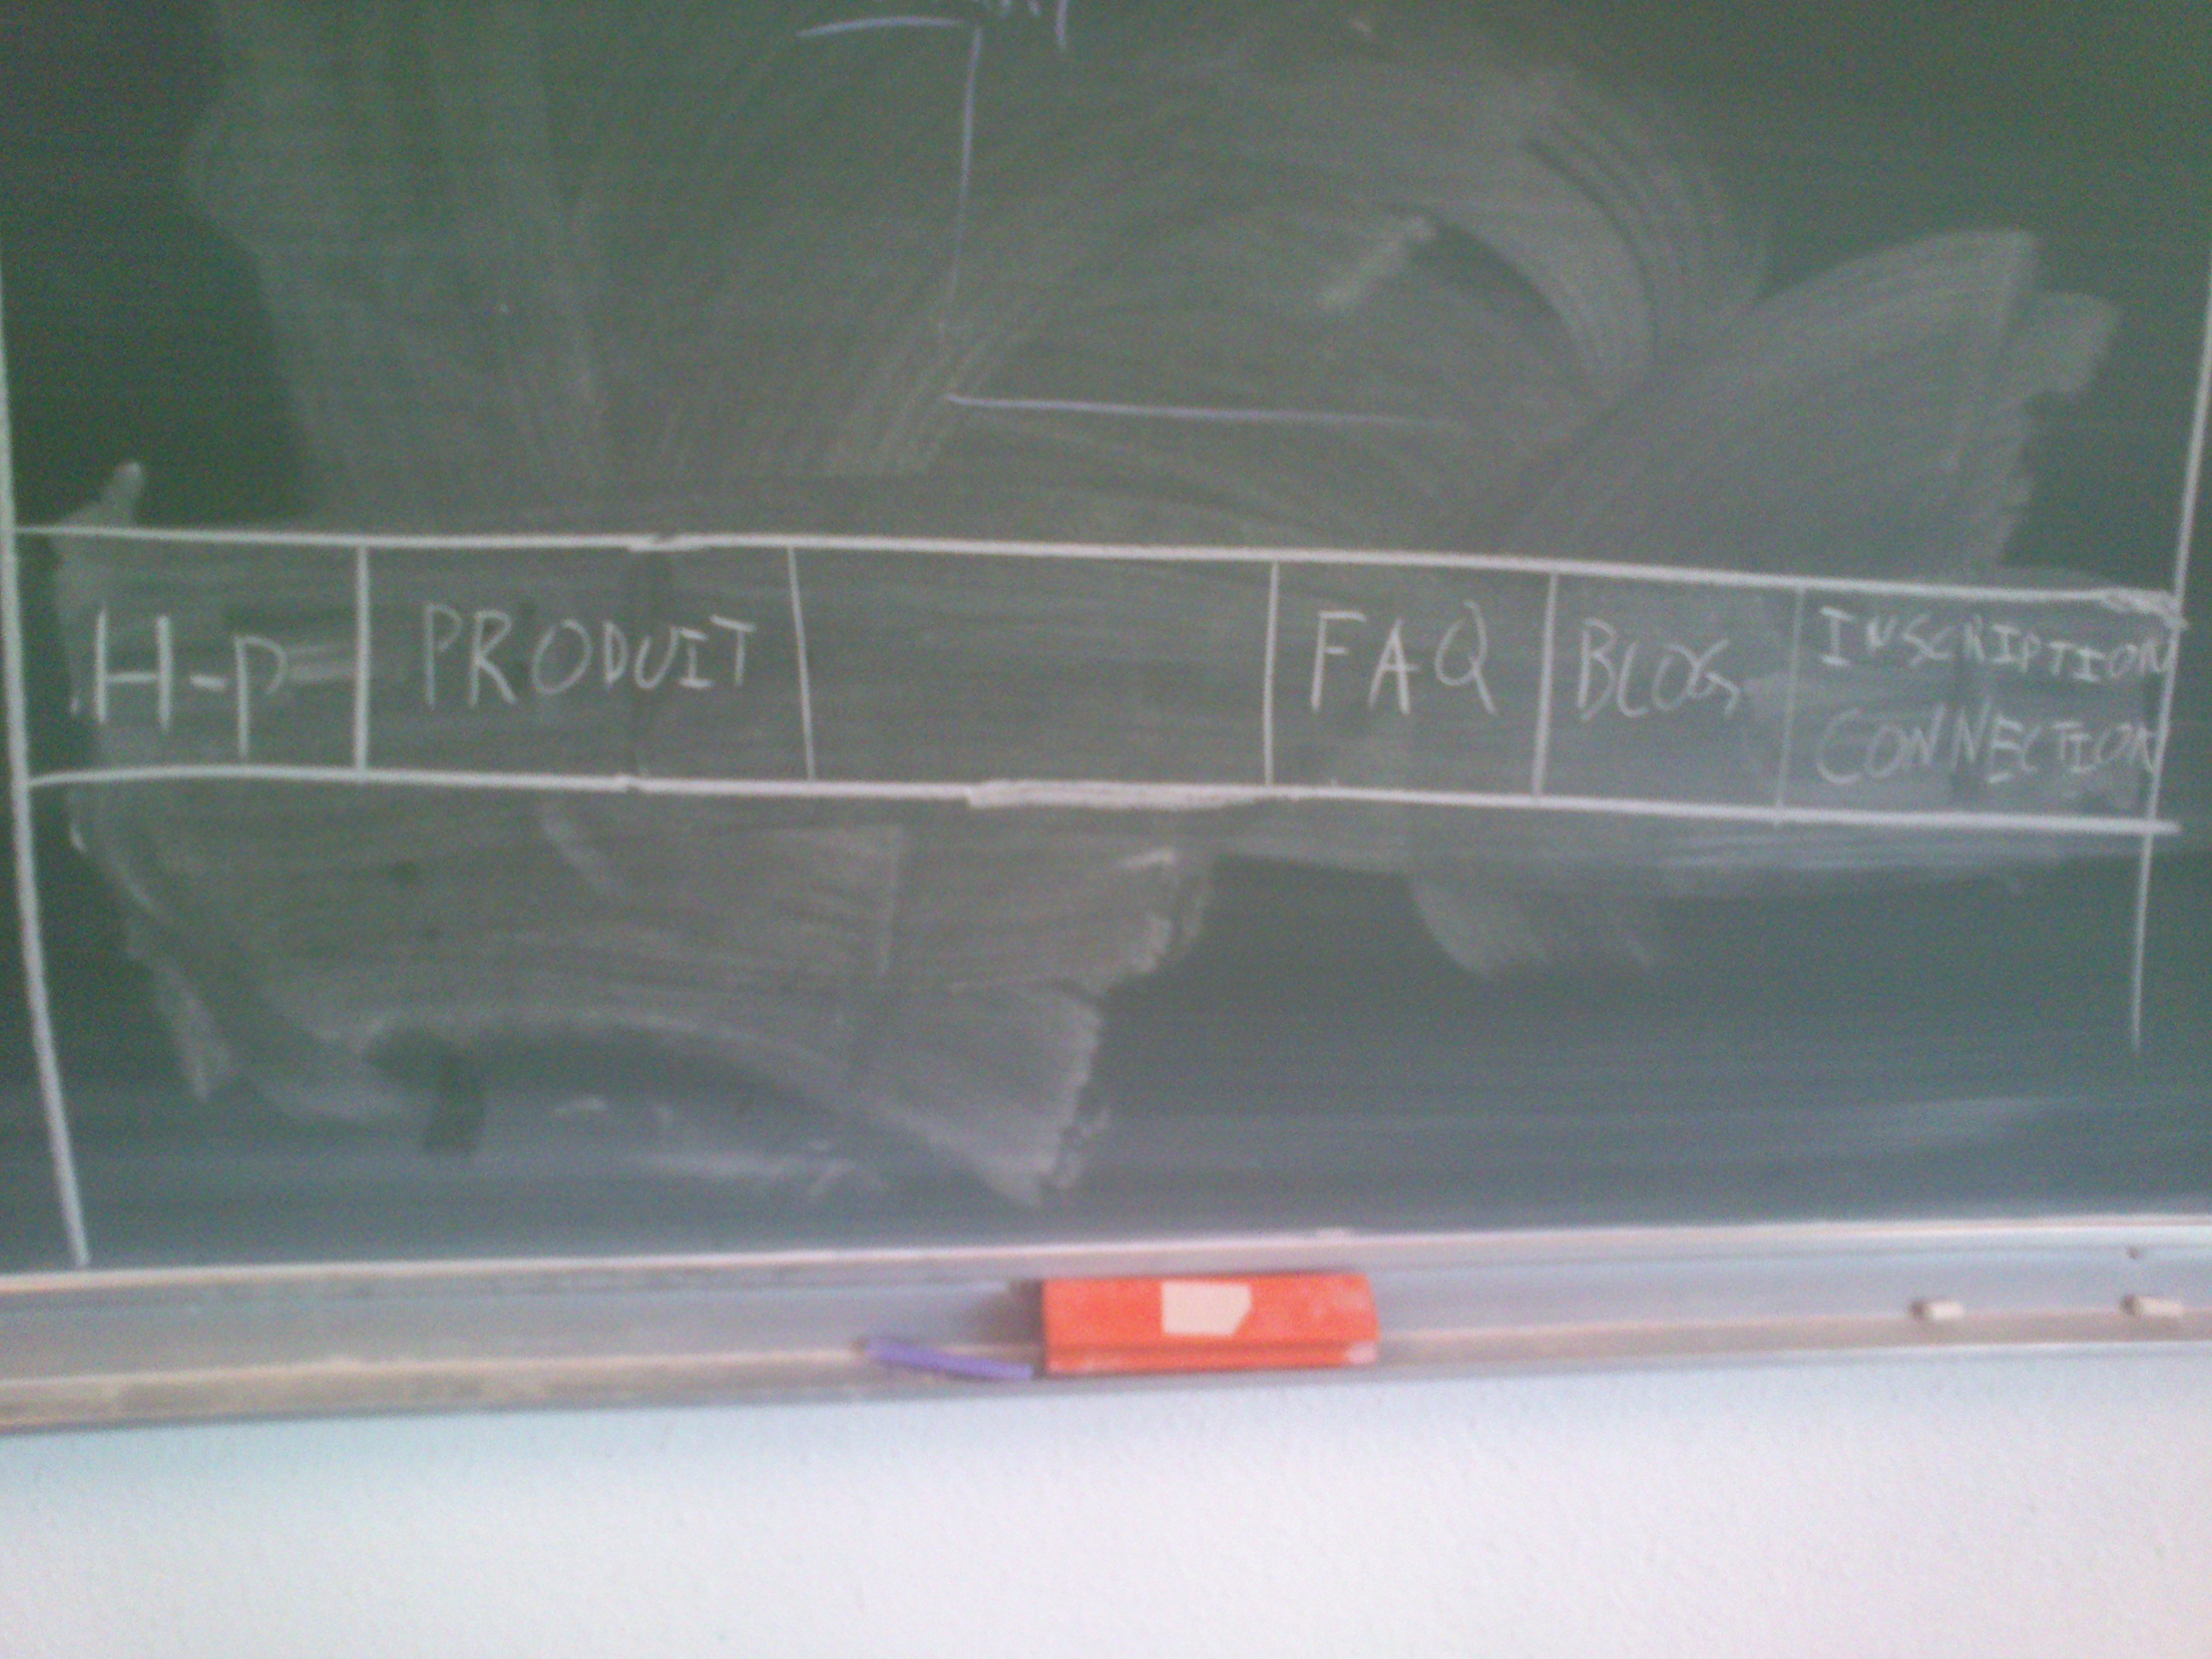 H-P
PRODUIT
FAQ
BLOG
INSCRIPTION
CONNECTION